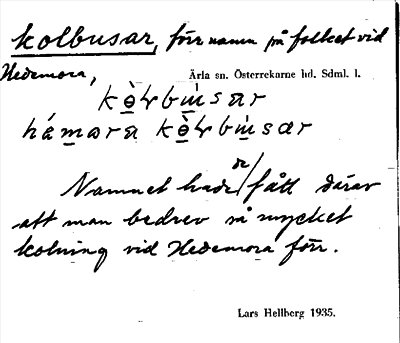 kolbusar, förr namn på folket vid
Hedemora,
Ärla sn. Österrekarne hd. Sdml. l.
Namnet hade de fått därav
att man bedrev så mycket
kolning vid Hedemora förr.
Lars Hellberg 1935.